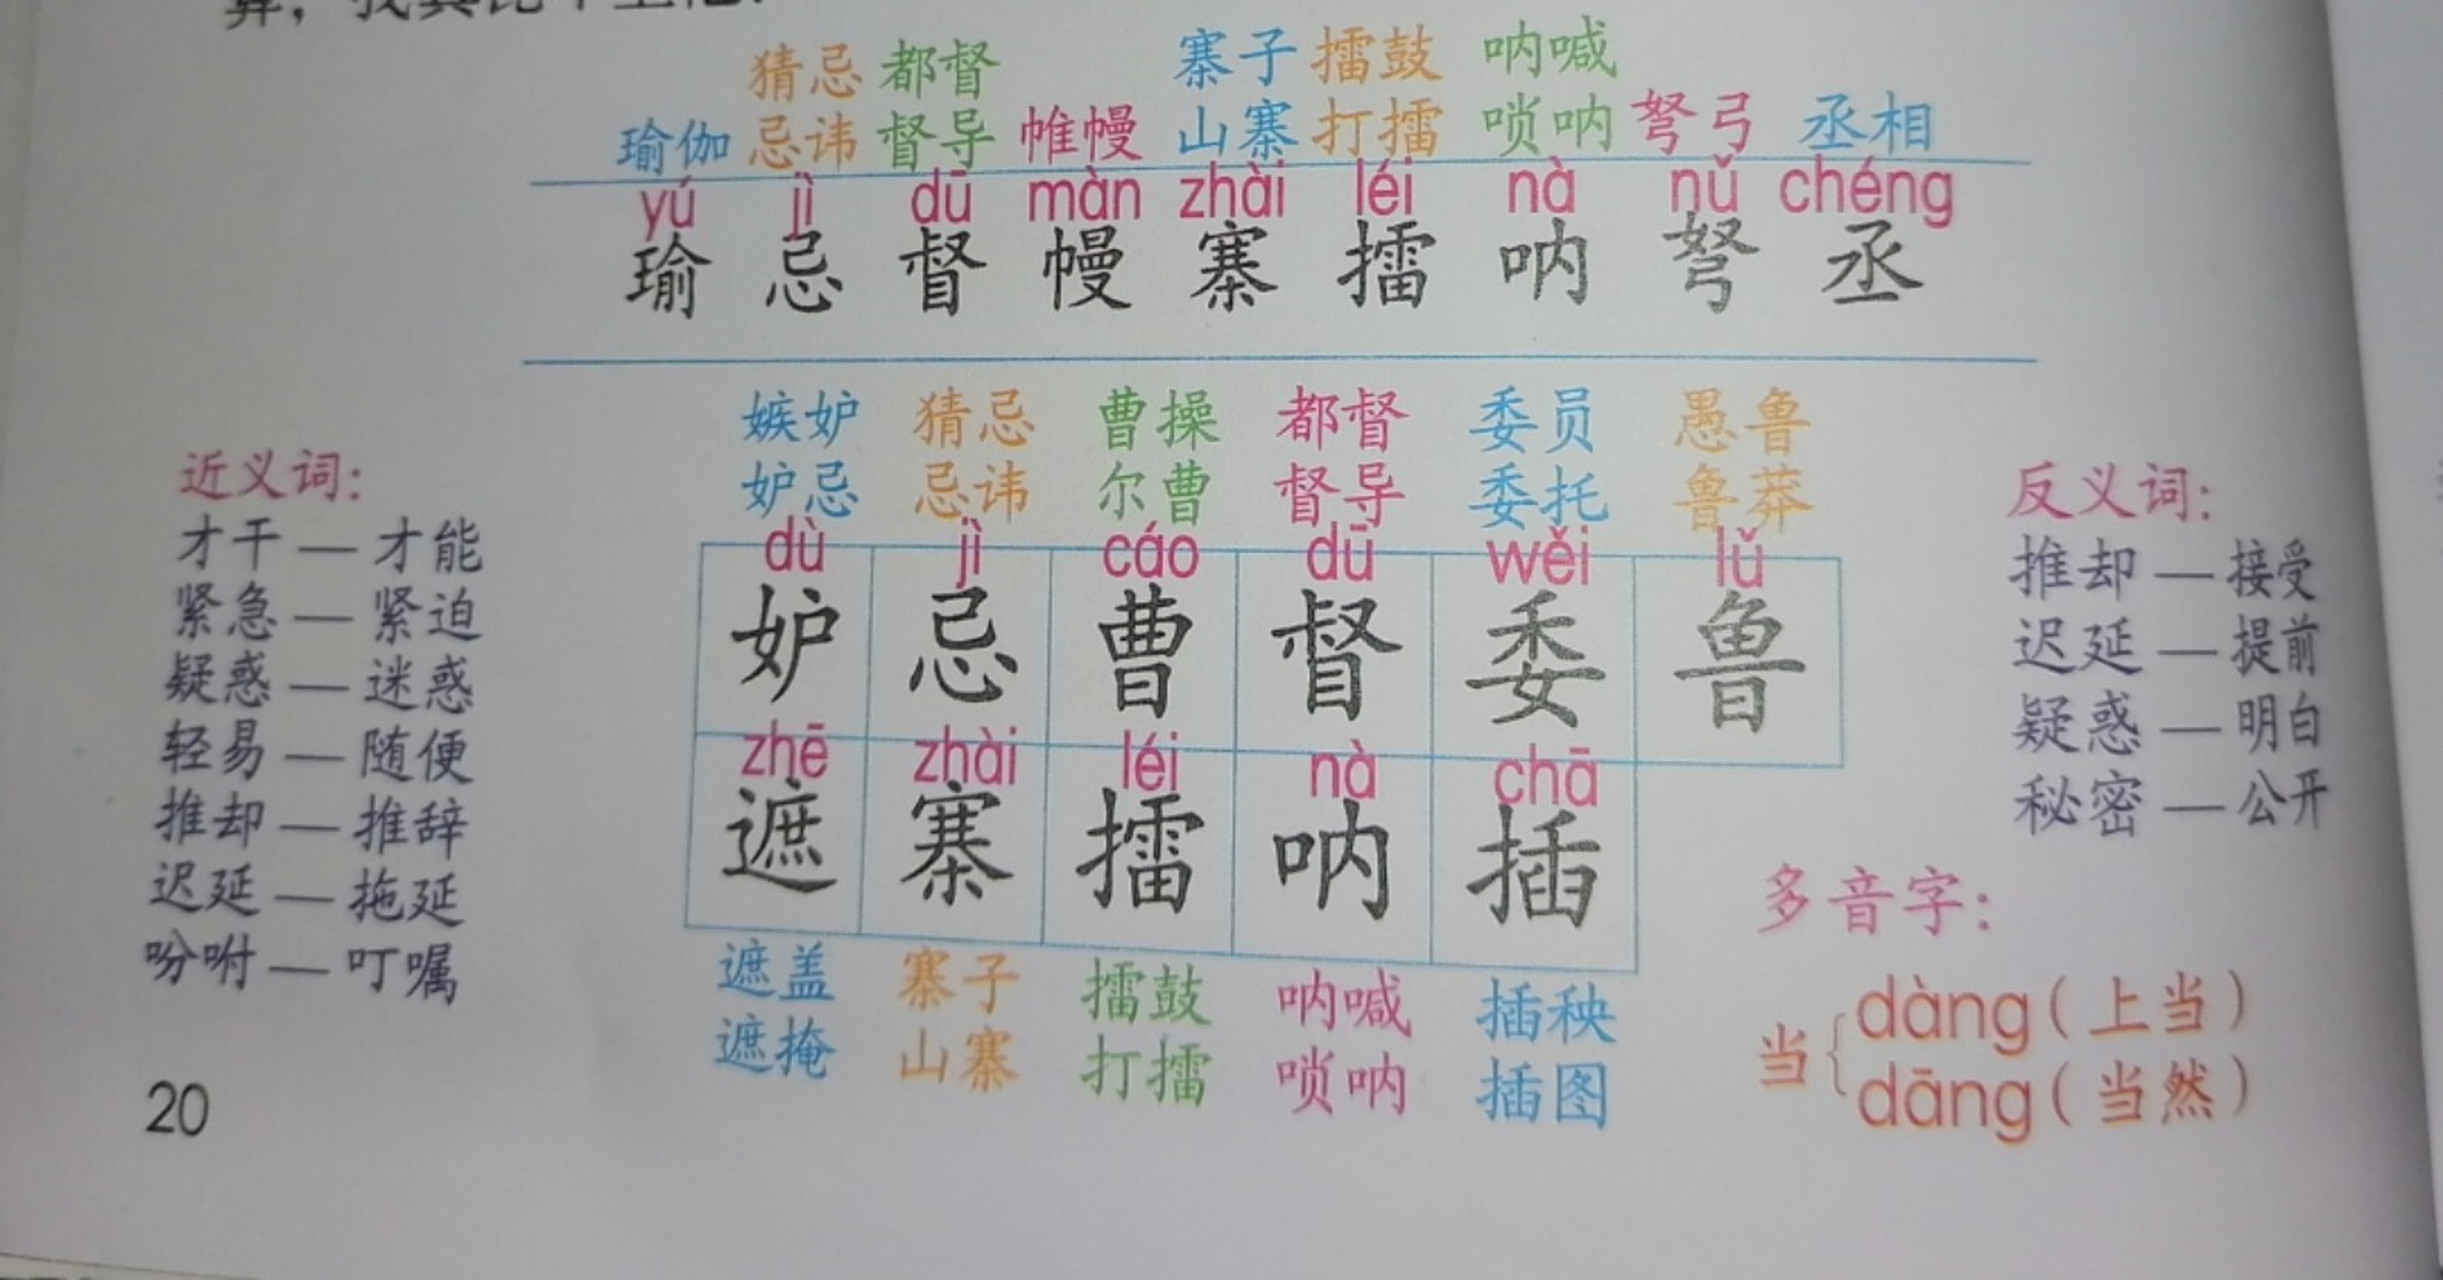 算，我真比不上他！
猜忌 都督 寨子 擂鼓 呐喊
瑜伽 忌讳 督导 帷幔 山寨 打擂 唢呐 弩弓 丞相
yú jì dū màn zhài léi nà nǔ chéng
瑜 忌 督 幔 寨 擂 呐 弩 丞
嫉妒 猜忌 曹操 都督 委员 愚鲁
妒忌 忌讳 尔曹 督导 委托 鲁莽
dù jì cáo dū wěi lǔ
妒 忌 曹 督 委 鲁
zhē zhài léi nà chā
遮 寨 擂 呐 插
遮盖 寨子 擂鼓 呐喊 插秧
遮掩 山寨 打擂 唢呐 插图
近义词：
才干 — 才能
紧急 — 紧迫
疑惑 — 迷惑
轻易 — 随便
推却 — 推辞
迟延 — 拖延
吩咐 — 叮嘱
反义词：
推却 — 接受
迟延 — 提前
疑惑 — 明白
秘密 — 公开
多音字：
当
dàng（上当）
dāng（当然）
20